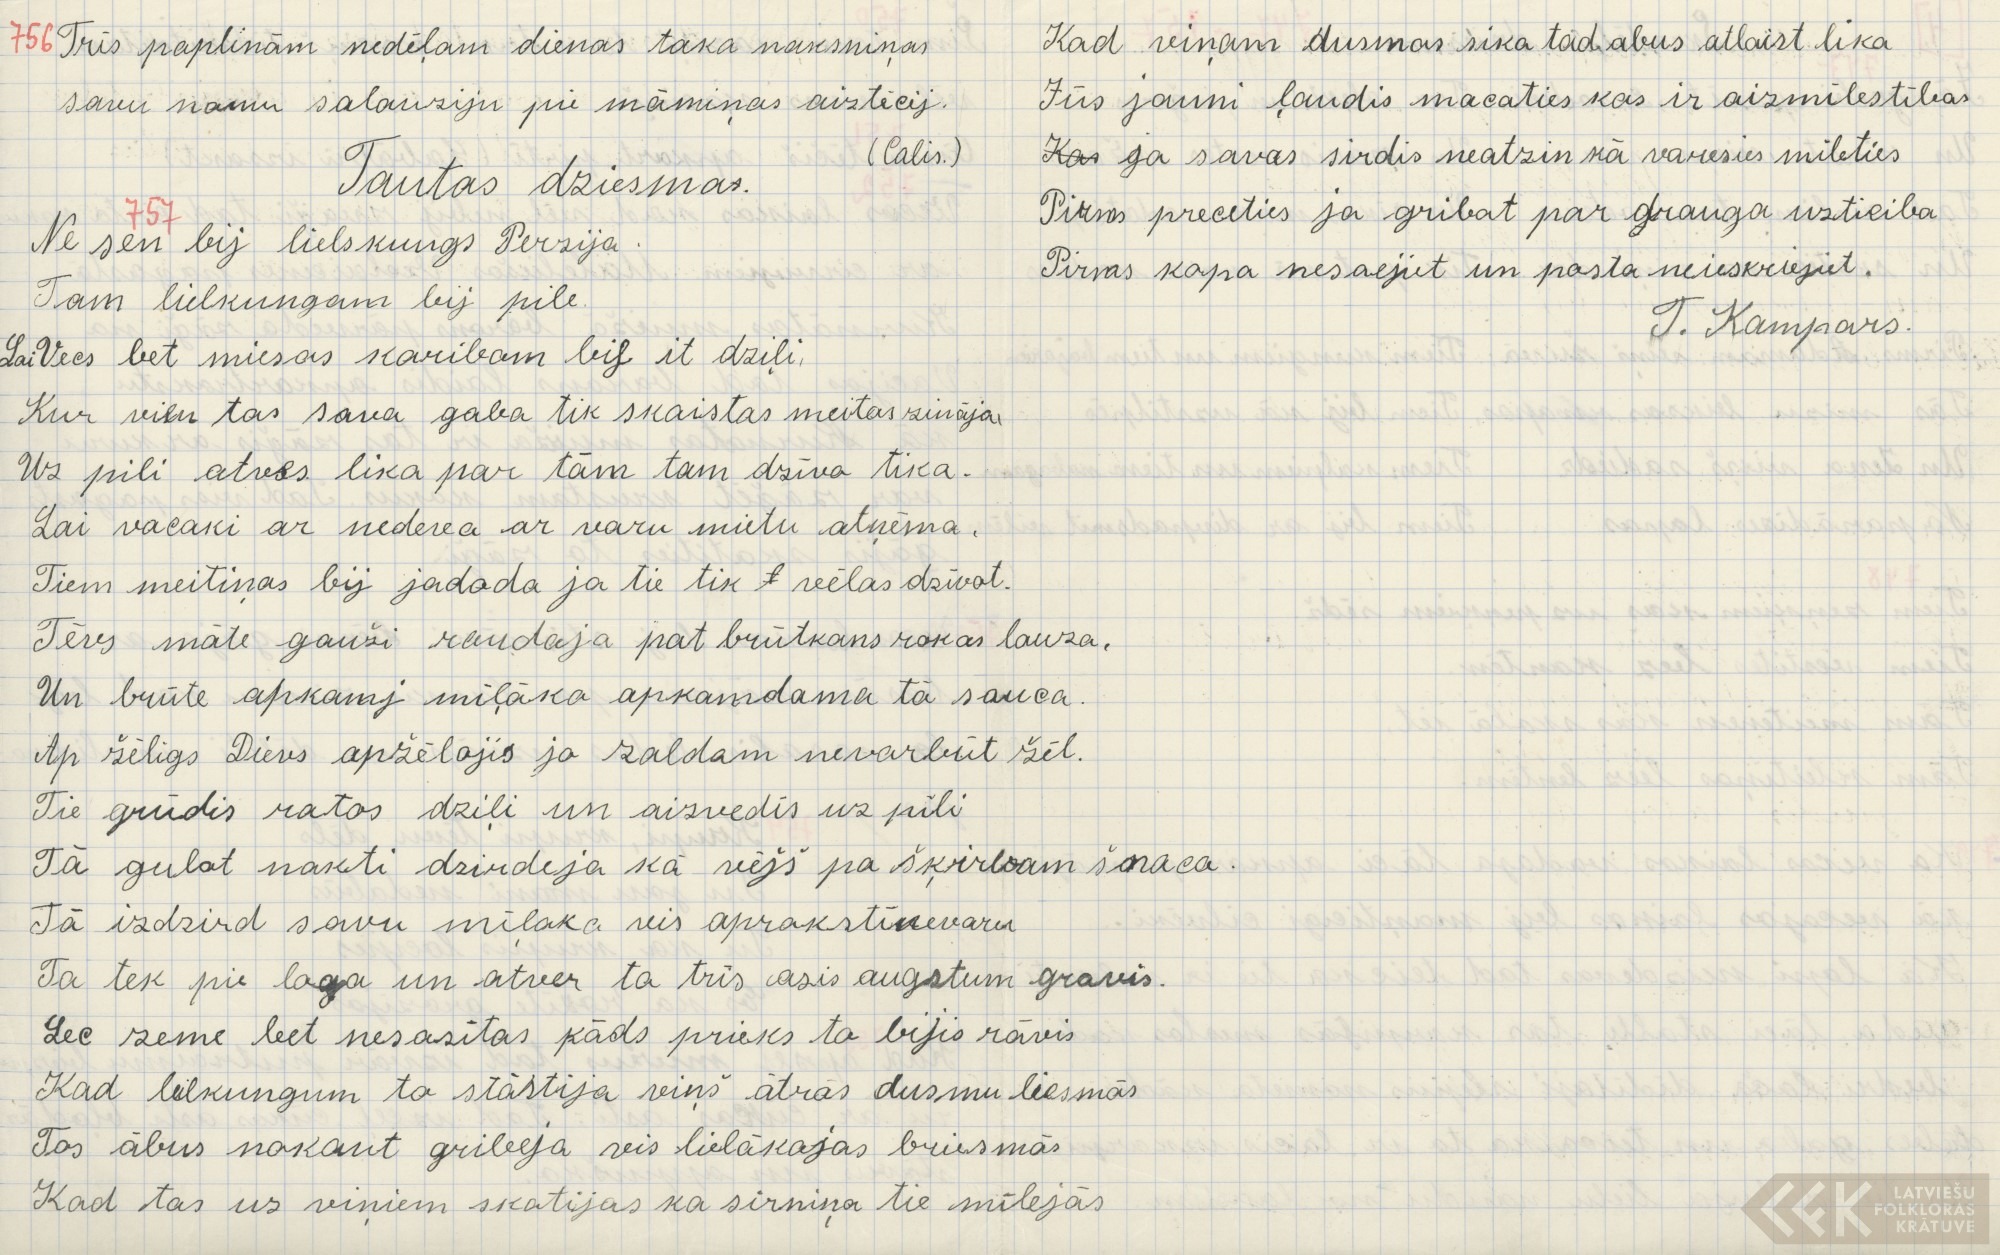 756 Trīs paplinām nedēļam dienas taka naksniņas
savu namu salauziju pie māmiņas aiztēcij.
(Calis.)
Tautas dziesmas.
757
Ne sen bij lielskungs Perzija.
Tam lielkungam bij pile.
Lai Vecs bet miesas karibam bij it dziļi,
Kur vien tas sava gaba tik skaistas meitas zināja,
Uz pili atves lika par tām tam dzīvo tika.
Lai vacaki ar nederea ar varu mietu atņēma,
Tiem meitiņas bij jadoda ja tie tik vēlas dzīvot.
Tēvs māte gauži raudaja pat brūtkans rokas lauza,
Un brūte apkamj mīļāka apkamdama tā sauca.
Ap žēligs Dievs apžēlojis jo zaldam nevarbūt žēl.
Tie grūdis ratos dziļi un aizvedīs uz pīli
Tā gulot nakti dzirdeja kā vējš pa šķirbam šnaca.
Tā izdzird savu mīļaka vis aprakstīnevaru
Ta tek pie loga un atver ta trīs asis augstum gravis.
Lec zeme bet nesasītas kāds prieks ta bijis rāvis
Kad lielkungum to stāstija viņš ātrās dusmu liesmās
Tos ābus nokaut gribeja vis lielākajas briesmās
Kad tas uz viņiem skatijas ka sirniņa tie mīlejās
Kad viņam dusmas sika tad abus atlaist lika
Jūs jauni ļaudis macaties kas ir aizmīlestības
Kas ja savas sirdis neatzin kā varesies mīleties
Pirms preceties ja gribat par drauga uzticiba
Pirms kopa nesaejiet un posta neieskriejiet.
T. Kampars.
LATVIEŠU
FOLKLORAS
KRĀTUVE